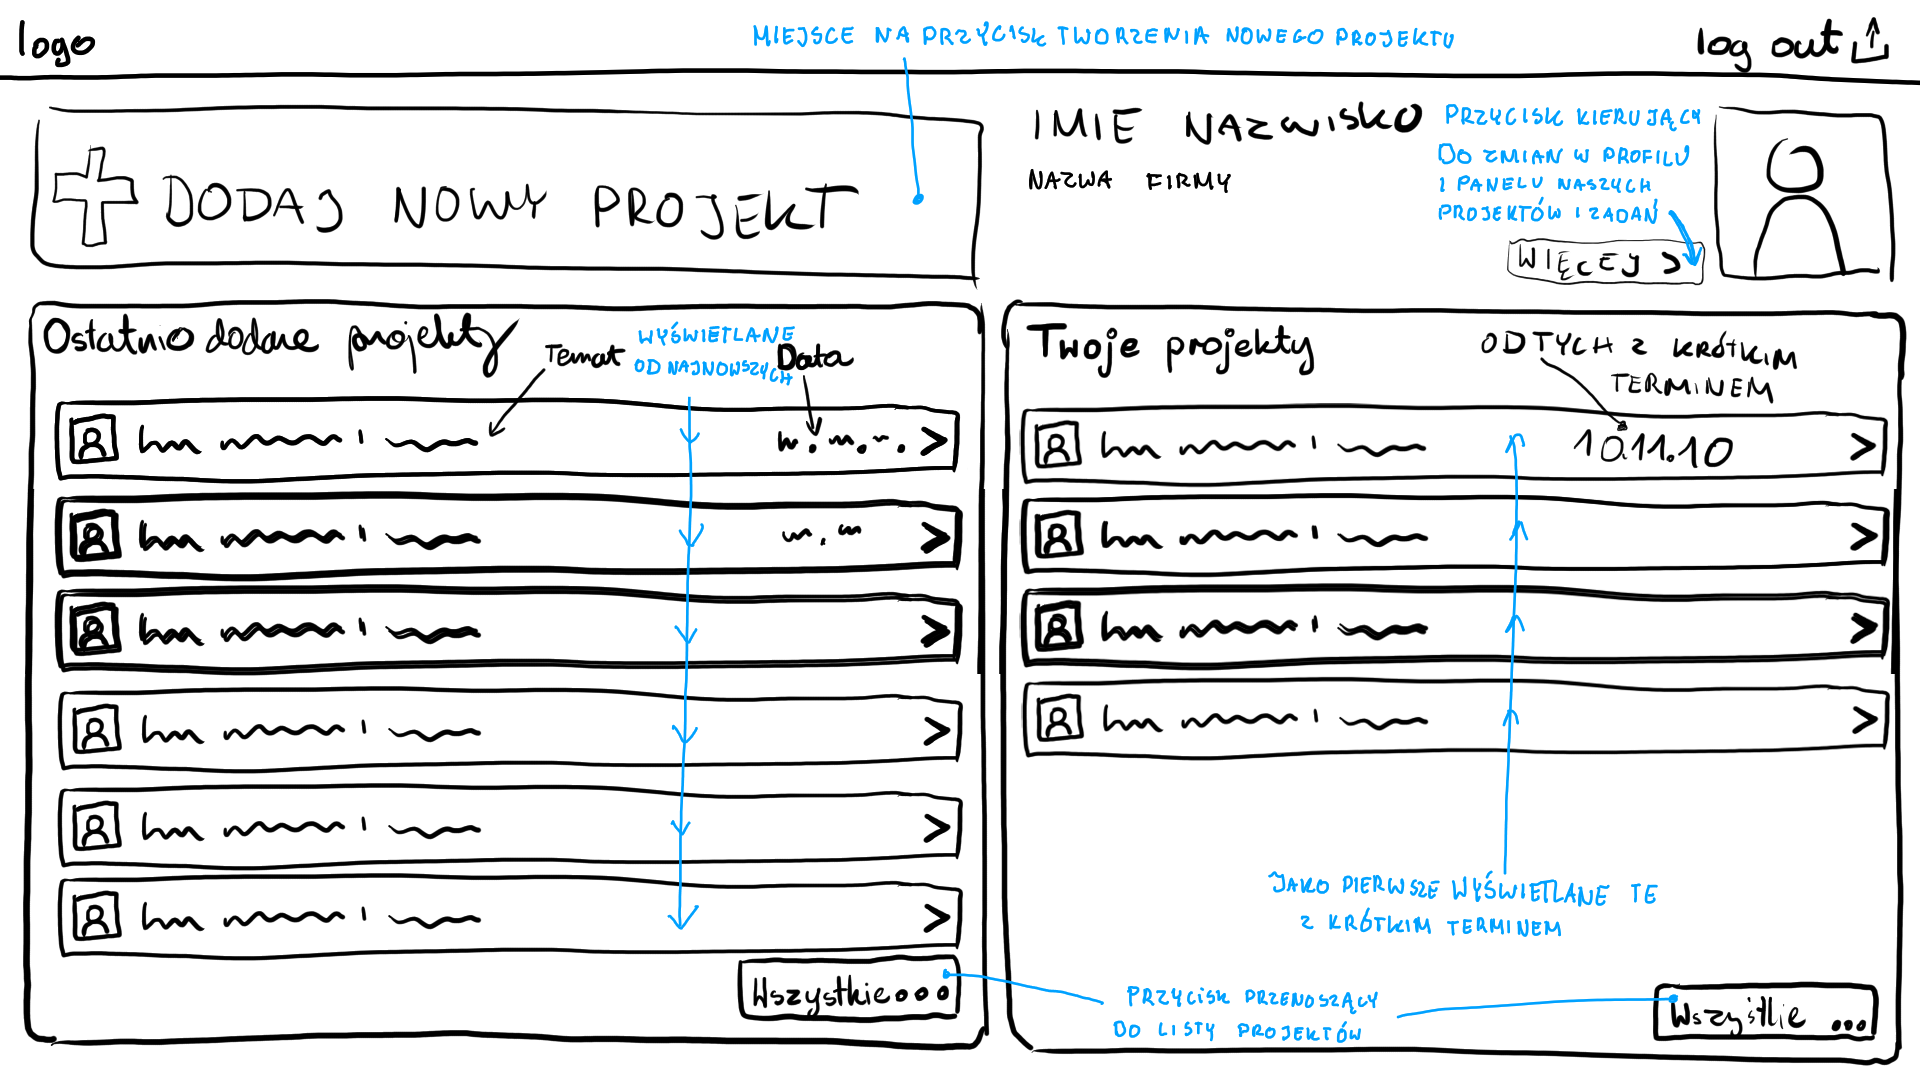 logo
MIEJSCE NA PRZYCISK TWORZENIA NOWEGO PROJEKTU
log out
DODAJ NOWY PROJEKT
IMIE NAZWISKO
NAZWA FIRMY
PRZYCISK KIERUJĄCY
DO ZMIAN W PROFILU
I PANELU NASZYCH
PROJEKTÓW I ZADAŃ
WIĘCEJ >
Ostatnio dodane projekty
Temat
WYŚWIETLANE
OD NAJNOWSZYCH
Data
Twoje projekty
OD TYCH Z KRÓTKIM
TERMINEM
10.11.10
JAKO PIERWSZE WYŚWIETLANE TE
Z KRÓTKIM TERMINEM
Wszystkie...
PRZYCISK PRZENOSZĄCY
DO LISTY PROJEKTÓW
Wszystkie ...